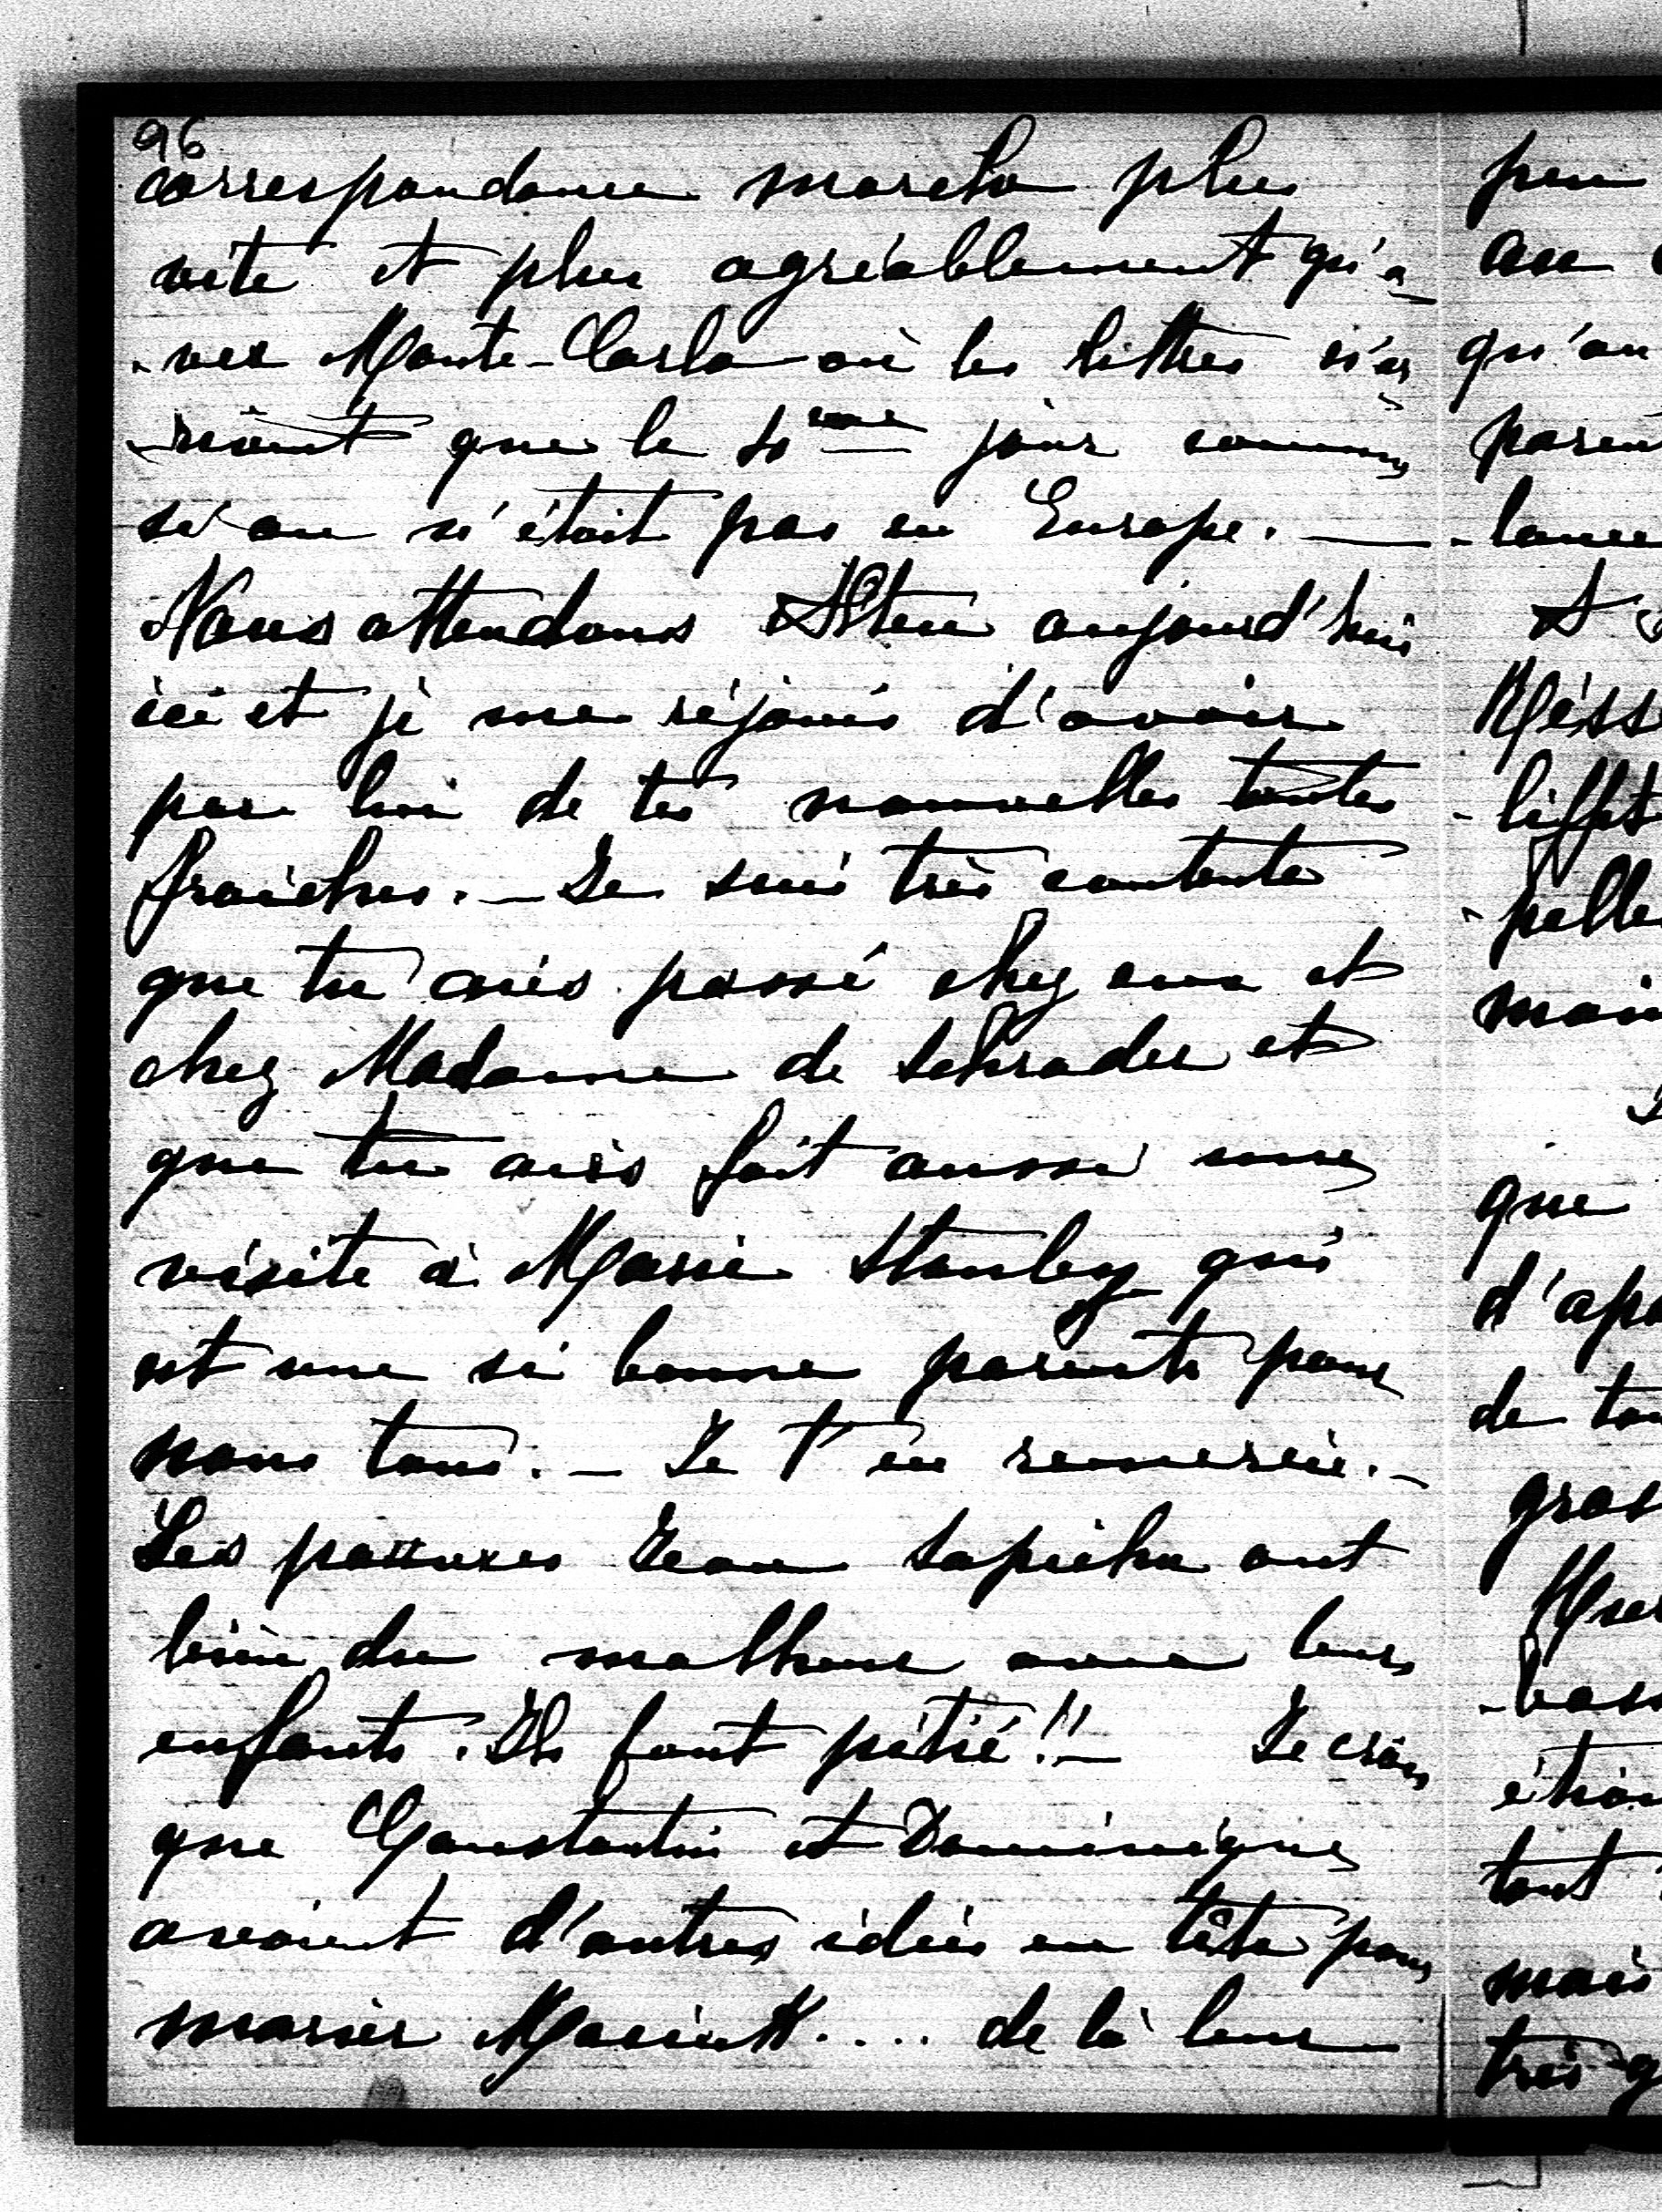 96
correspondance marche plus
vite et plus agréablement qu'a
-vec Monte-Carlo où les lettres n'ar
-rivent que le 4ème jour comme
si on n'était pas en Europe. —
Nous attendons aujourd'hui
ici et je me réjouis d'avoir
par lui de tes nouvelles toutes
fraiches. — Je suis très contente
que tu aies passé chez eux et
chez Madame de Schrader et
que tu aies fait aussi une
visite à Marie Stanley qui
est une si bonne parente pour
nous tous. — Je t'en remercie. —
Les pauvres Jean Sapieha ont
bien du malheur avec leurs
enfants. Ils font pitié!! — Je crois
que Constantin et Dominique
avaient d'autres idées en tête pour
marier .... de là leur
peu
au
qu'on
paren
-lance
et
-liffet
-pelle
mais
que
d'apr
de tou
gros
-bass
tout
mais
très g